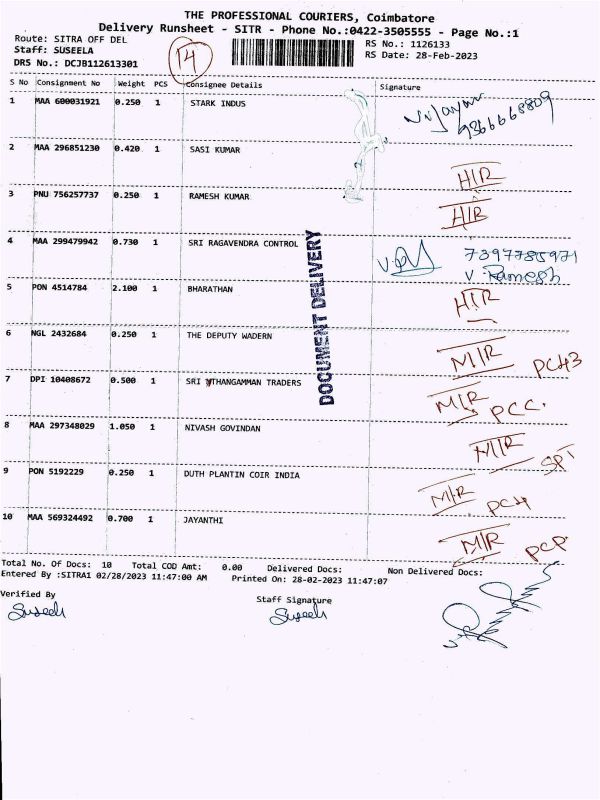 THE PROFESSIONAL COURIERS, Coimbatore
Delivery Runsheet - SITR - Phone No.:0422-3505555 - Page No.:1
Route: SITRA OFF DEL
Staff: SUSEELA
DRS No.: DCJB112613301
14
RS No.: 1126133
RS Date: 28-Feb-2023
S No Consignment No Weight PCS Consignee Details Signature
1 MAA 600031921 0.250 1 STARK INDUS
9366668809
2 MAA 296851230 0.420 1 SASI KUMAR H/R
3 PNU 756257737 0.250 1 RAMESH KUMAR H/R
4 MAA 299479942 0.730 1 SRI RAGAVENDRA CONTROL 7397785971
V. Ramesh
5 PON 4514784 2.100 1 BHARATHAN H/R
6 NGL 2432684 0.250 1 THE DEPUTY WADERN M/R
7 DPI 10408672 0.500 1 SRI THANGAMMAN TRADERS M/R PCC.
8 MAA 297348029 1.050 1 NIVASH GOVINDAN M/R
9 PON 5192229 0.250 1 DUTH PLANTIN COIR INDIA M/R
10 MAA 569324492 0.700 1 JAYANTHI M/R PCP
DOCUMENT DELIVERY
Total No. Of Docs: 10 Total COD Amt: 0.00 Delivered Docs: Non Delivered Docs:
Entered By :SITRA1 02/28/2023 11:47:00 AM Printed On: 28-02-2023 11:47:07
Verified By
Suseela
Staff Signature
Suseela